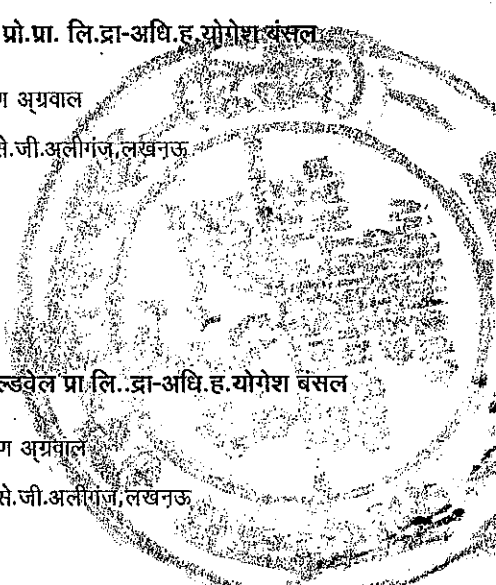 प्रो.प्रा. लि.द्रा-अधि.ह.योगेश बंसल
ण अग्रवाल
से.जी.अलीगंज,लखनऊ
ल्डवेल प्रा लि..द्रा-अधि.ह.योगेश बंसल
ण अग्रवाल
से.जी.अलीगंज,लखनऊ